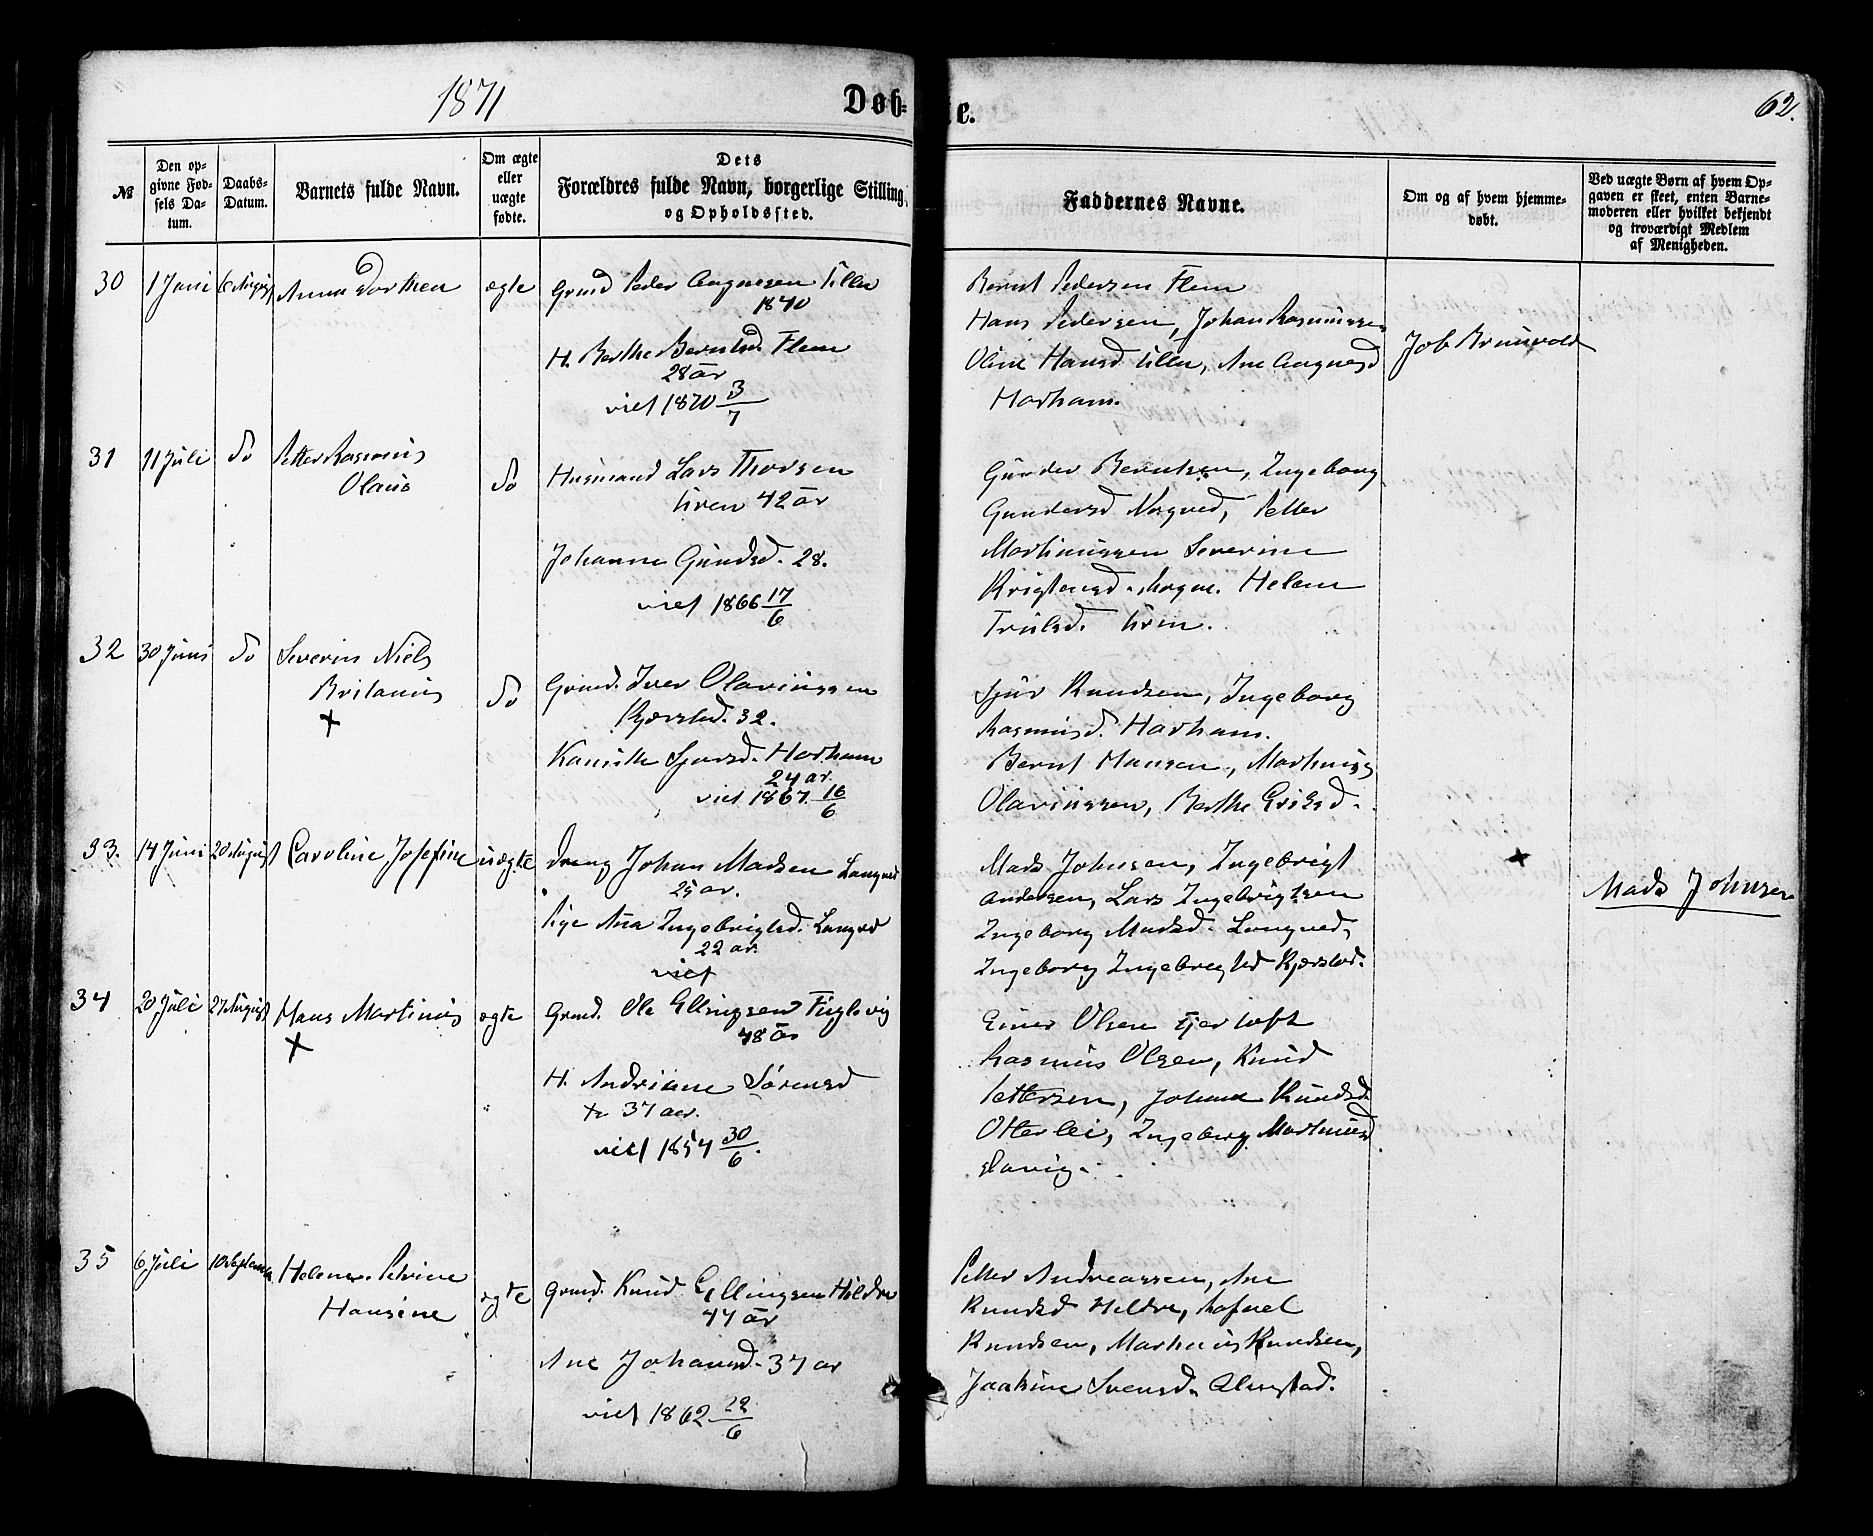 1871
Døb-
e.
62.
№
Den op-
givne Fød-
sels Da-
tum.
Daabs-
Datum.
Barnets fulde Navn.
Om ægte
eller
uægte
fødte.
Dets
Forældres fulde Navn, borgerlige Stilling,
og Opholdssted.
Faddernes Navne.
Om og af hvem hjemme-
døbt.
Ved uægte Børn af hvem Op-
gaven er skeet, enten Barne-
moderen eller hvilket bekjendt
og troværdigt Medlem
af Menigheden.
30
1 Juni
6 August
Anne Dorthea
ægte
Grmd Peder Aagnesen Ulla
1840
H. Berthe Berntsd. Flem
28 År
viet 1870 3/7
Bernt Pedersen Flem
Hans Pedersen, Johan Rasmussen
Oline Hansd Ulla, Ane Aagnesd
Harham.
Job Brunvold
31
11 Juli
do
Petter Rasmus
Olaus
do
Husmand Lars Thorsen
42 år
Johanne Gundsd. 28.
viet 1866 17/6
Gunder Berntsen, Ingeborg
Gundersd Nogved, Petter
Martinussen Severine
Kristensd. Helene
Trulsd.
32
30 Juni
do
Severin Niels
Britanus
do
Grmd. Iver Olavinssen
Kjærstad. 32.
Sjursd. Harham
24 ar
viet 1867. 16/6
Sjur Knudsen, Ingeborg
Rasmusd. Harham.
Bernt Hansen, Martinus
Olavinssen, Berthe Eriksd.
33.
14 Juni
20 August
Caroline Josefine
uægte
Dreng Johan Madsen Longved
25 ar.
Pige Ana Ingebrigtsd. Longvd
22 ar.
viet
Mads Johnsen, Ingebrigt
Andersen, Lars Ingebrigtsen
Ingeborg Madsd. Longved,
Ingeborg Ingebrigtsd Kjærstad.
Mads Johnsen
34
20 Juli
27 August
Hans Martinus
ægte
Grmd. Ole Ellingsen Fuglevig
48 år
H. Andriane Sørensd
37 aar.
viet 1854 30/6.
Einer Olsen Fjertoft
Rasmus Olsen, Knud
Pettersen, Johane Knudsd
Otterlei, Ingeborg Martinusd
Slavig.
35
6 Juli
10 September
Helene Petrine
Hansine
ægte
Grmd. Knud Ellingsen Hildre
44 år
Ane Johansd. 37 ar
viet 1862 22/6
Petter Andreassen, Ane
Knudsd Hildre, Rafael
Knudsen, Martinus Knudsen,
Jaakine Svensd. Alnestad.